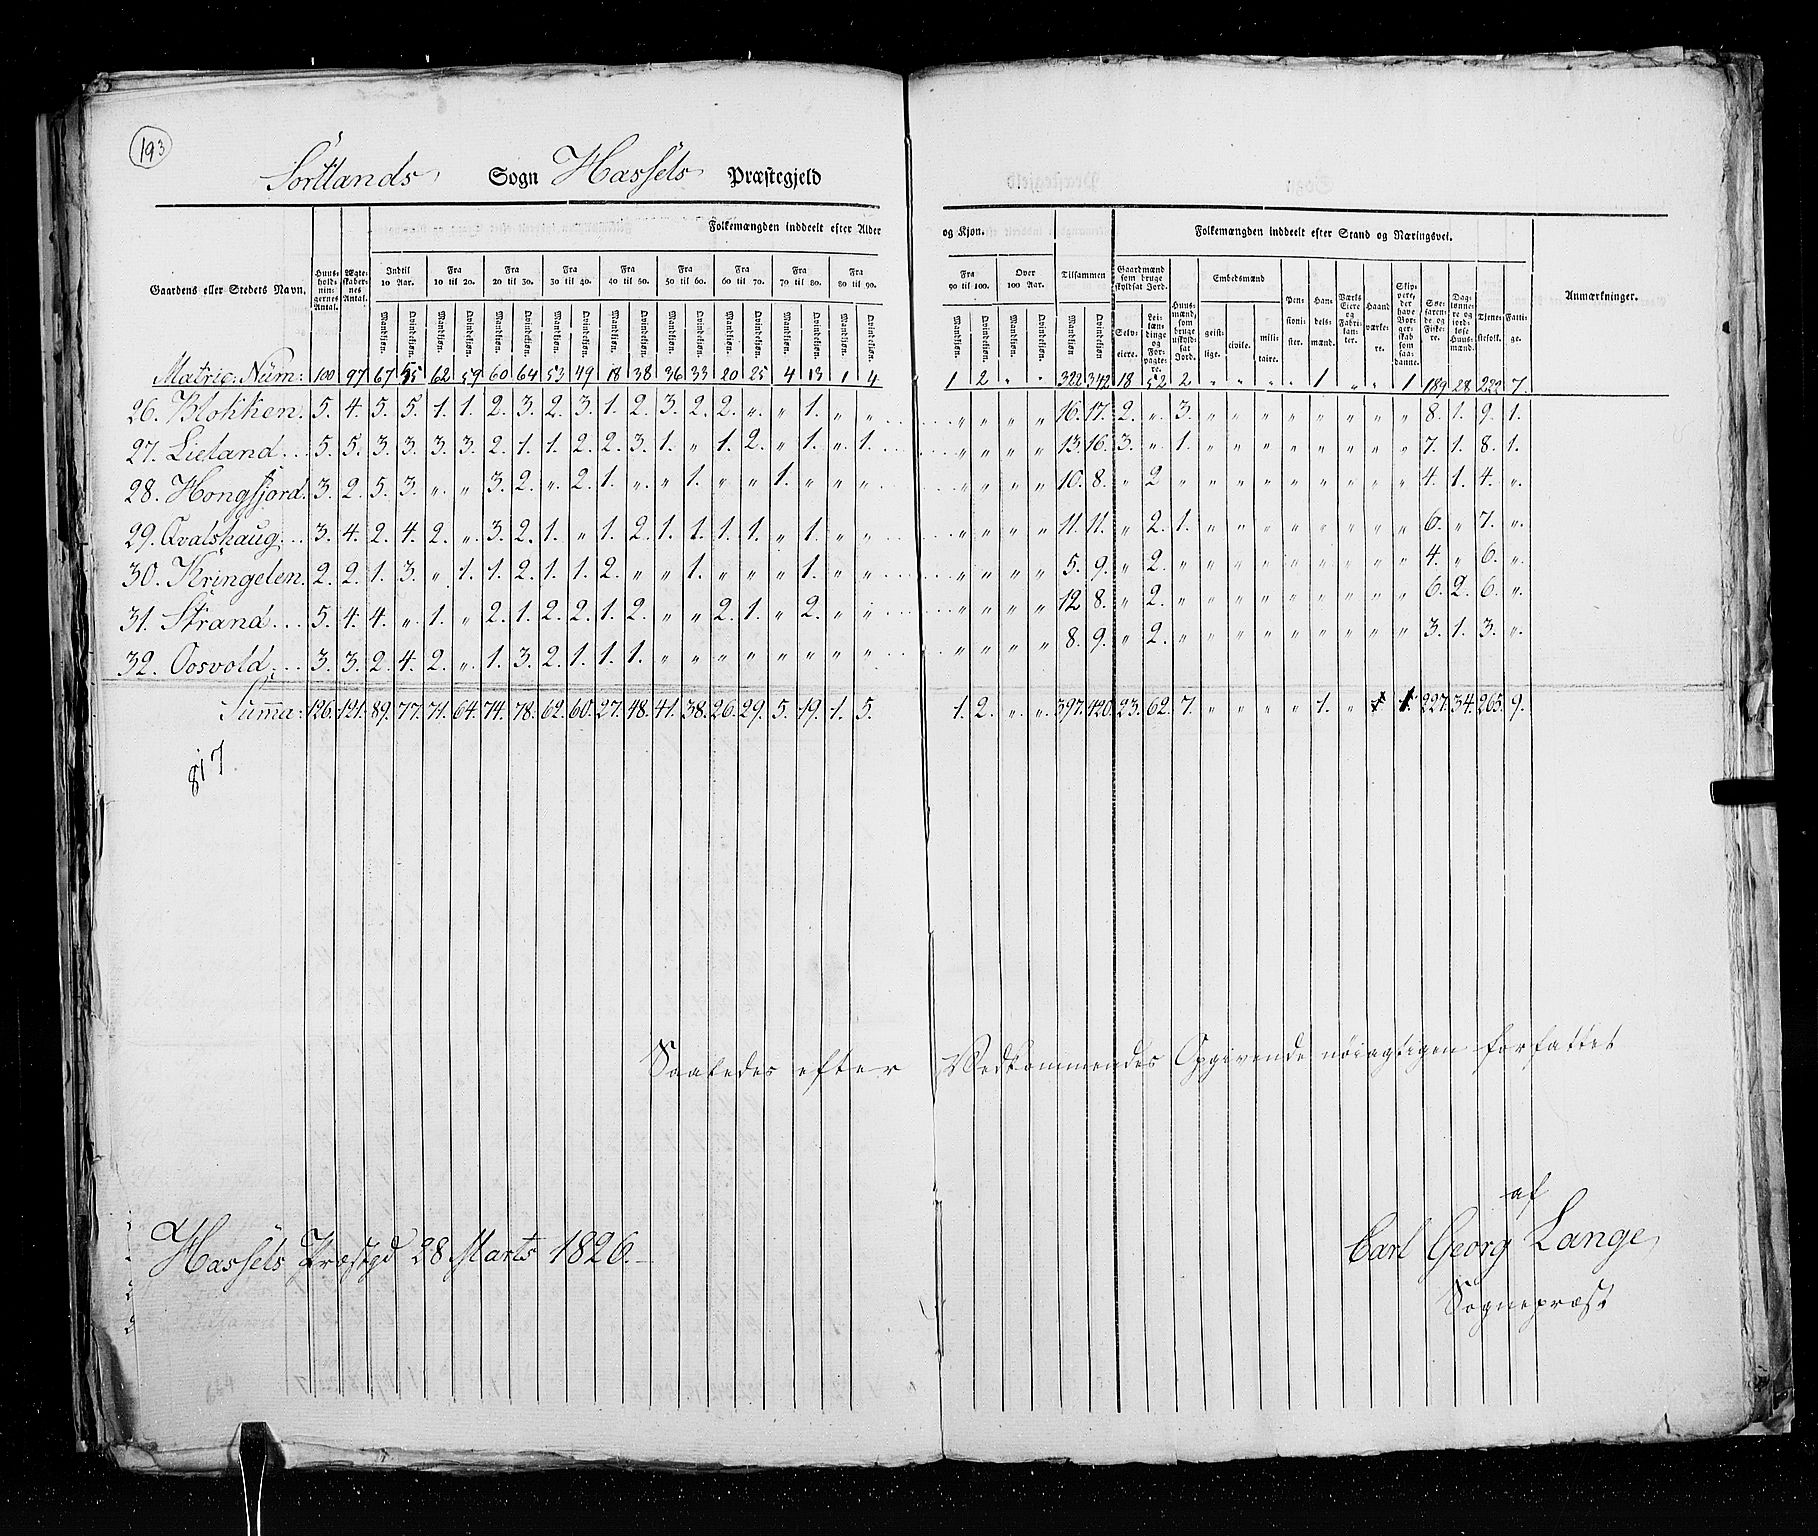 193
Sortlands Sogn Hassels Præstegjeld
Folkemængden inddeelt efter Alder og Kjøn. Folkemængden inddeelt efter Stand og Næringsvei.
Gaardens eller Stedets Navn. Huusholdningernes Antal. Ægteskabernes Antal. Indtil 10 Aar. Fra 10 til 20. Fra 20 til 30. Fra 30 til 40. Fra 40 til 50. Fra 50 til 60. Fra 60 til 70. Fra 70 til 80. Fra 80 til 90. Fra 90 til 100. Over 100 Aar. Tilsammen Gaardmænd som bruge skyldsat Jord. Huusmænd, som bruge uskyldsat Jord. Embedsmænd Pensionister. Handelsmænd. Værks Eiere og Fabrikanter. Haandværkere. Skippere, der have Borgerskab som saadanne. Søefarende og Fiskere. Daglønnere og jordløse Huusmænd. Tjenestefolk. Fattige. Anmærkninger.
Mandkjøn. Qvindekjøn. Mandkjøn. Qvindekjøn. Mandkjøn. Qvindekjøn. Mandkjøn. Qvindekjøn. Mandkjøn. Qvindekjøn. Mandkjøn. Qvindekjøn. Mandkjøn. Qvindekjøn. Mandkjøn. Qvindekjøn. Mandkjøn. Qvindekjøn. Mandkjøn. Qvindekjøn. Mandkjøn. Qvindekjøn. Mandkjøn Qvindekjøn Selveiere. Leilændinge og Forpagtere. geistlige. civile. militaire.
Matric: Num: 100 97 67 55 62 59 60 64 53 49 18 38 36 33 20 25 4 13 1 4 1 2 " " 322 342 18 52 2 " " " " 1 " " 1 189 28 222 7
26. Blokken. 5. 4. 5. 5. 1. 1. 2. 3. 2. 3. 1. 2. 3. 2. 2. " " 1. " " " " " " 16. 17. 2. " 3. " " " " " " " " 8. 1. 9. 1.
27. Lieland 5. 5. 3. 3. 3. 3. 2. 1. 1. 2. 2. 3. 1. " 1. 2. " 1. " 1. " " " " 13. 16. 3. " 1. " " " " " " " " 7. 1. 8. 1.
28. Hongfjord. 3. 2. 5. 3. " " 3. 2. " 2. 1. " " 1. " " 1. " " " " " " " 10. 8. " 2 " " " " " " " " " 4. 1. 4. "
29. Qvalshaug 3. 4. 2. 4. 2. " 3. 2. 1. " 1. 2. 1. 1. 1. 1. " 1. " " " " " " 11. 11. " 2. 1. " " " " " " " " 6. " 7. "
30. Kringelen. 2. 2. 1. 3. " 1. 1. 2. 1. 1. 2. " " 1. " " " 1. " " " " " " 5. 9. " 2. " " " " " " " " " 4. " 6. "
31. Strand 5. 4. 4. " 1. " 2. 1. 2. 2. 1. 2. " " 2. 1. " 2. " " " " " " 12 8. " 2. " " " " " " " " " 6. 2. 6. "
32. Oosvold 3. 3. 2. 4. 2. " 1. 3. 2. 1. 1. 1. " " " " " " " " " " " " 8. 9. " 2. " " " " " " " " " 3. 1. 3. "
Summa: 126. 121. 89. 77. 71. 64. 74. 78. 62. 60. 27. 48. 41. 38. 26. 29. 5. 19. 1. 5. 1. 2. " " 397. 420. 23. 62. 7. " " " " 1. " 1. 227. 34. 265. 9.
817.
Saaledes efter Vedkommendes Opgivende nöiagtigen forfattet
af
Hassels Præstgd 28 Marts 1826. Carl Georg Lange
Sognepræst